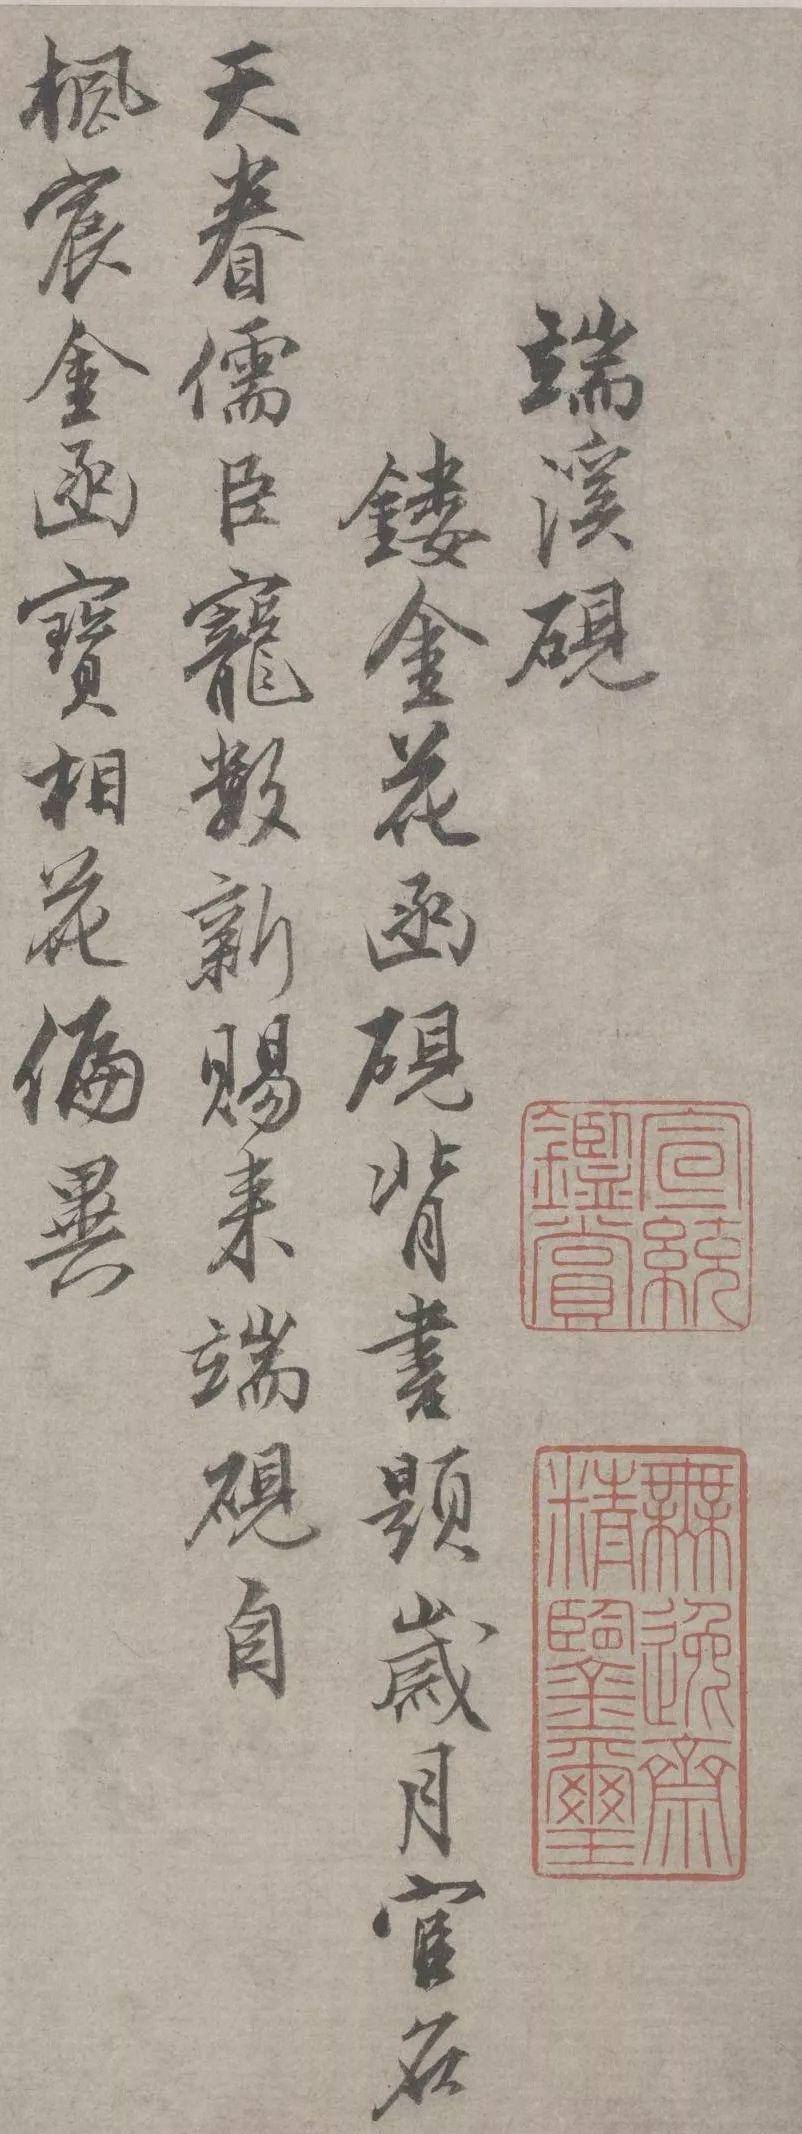 端溪硯
鏤金花函硯背書題歲月官名
天眷儒臣寵數新賜来端硯自
楓宸金函寶相花偏異
宣統
鑑賞
無逸齋
精鑒璽